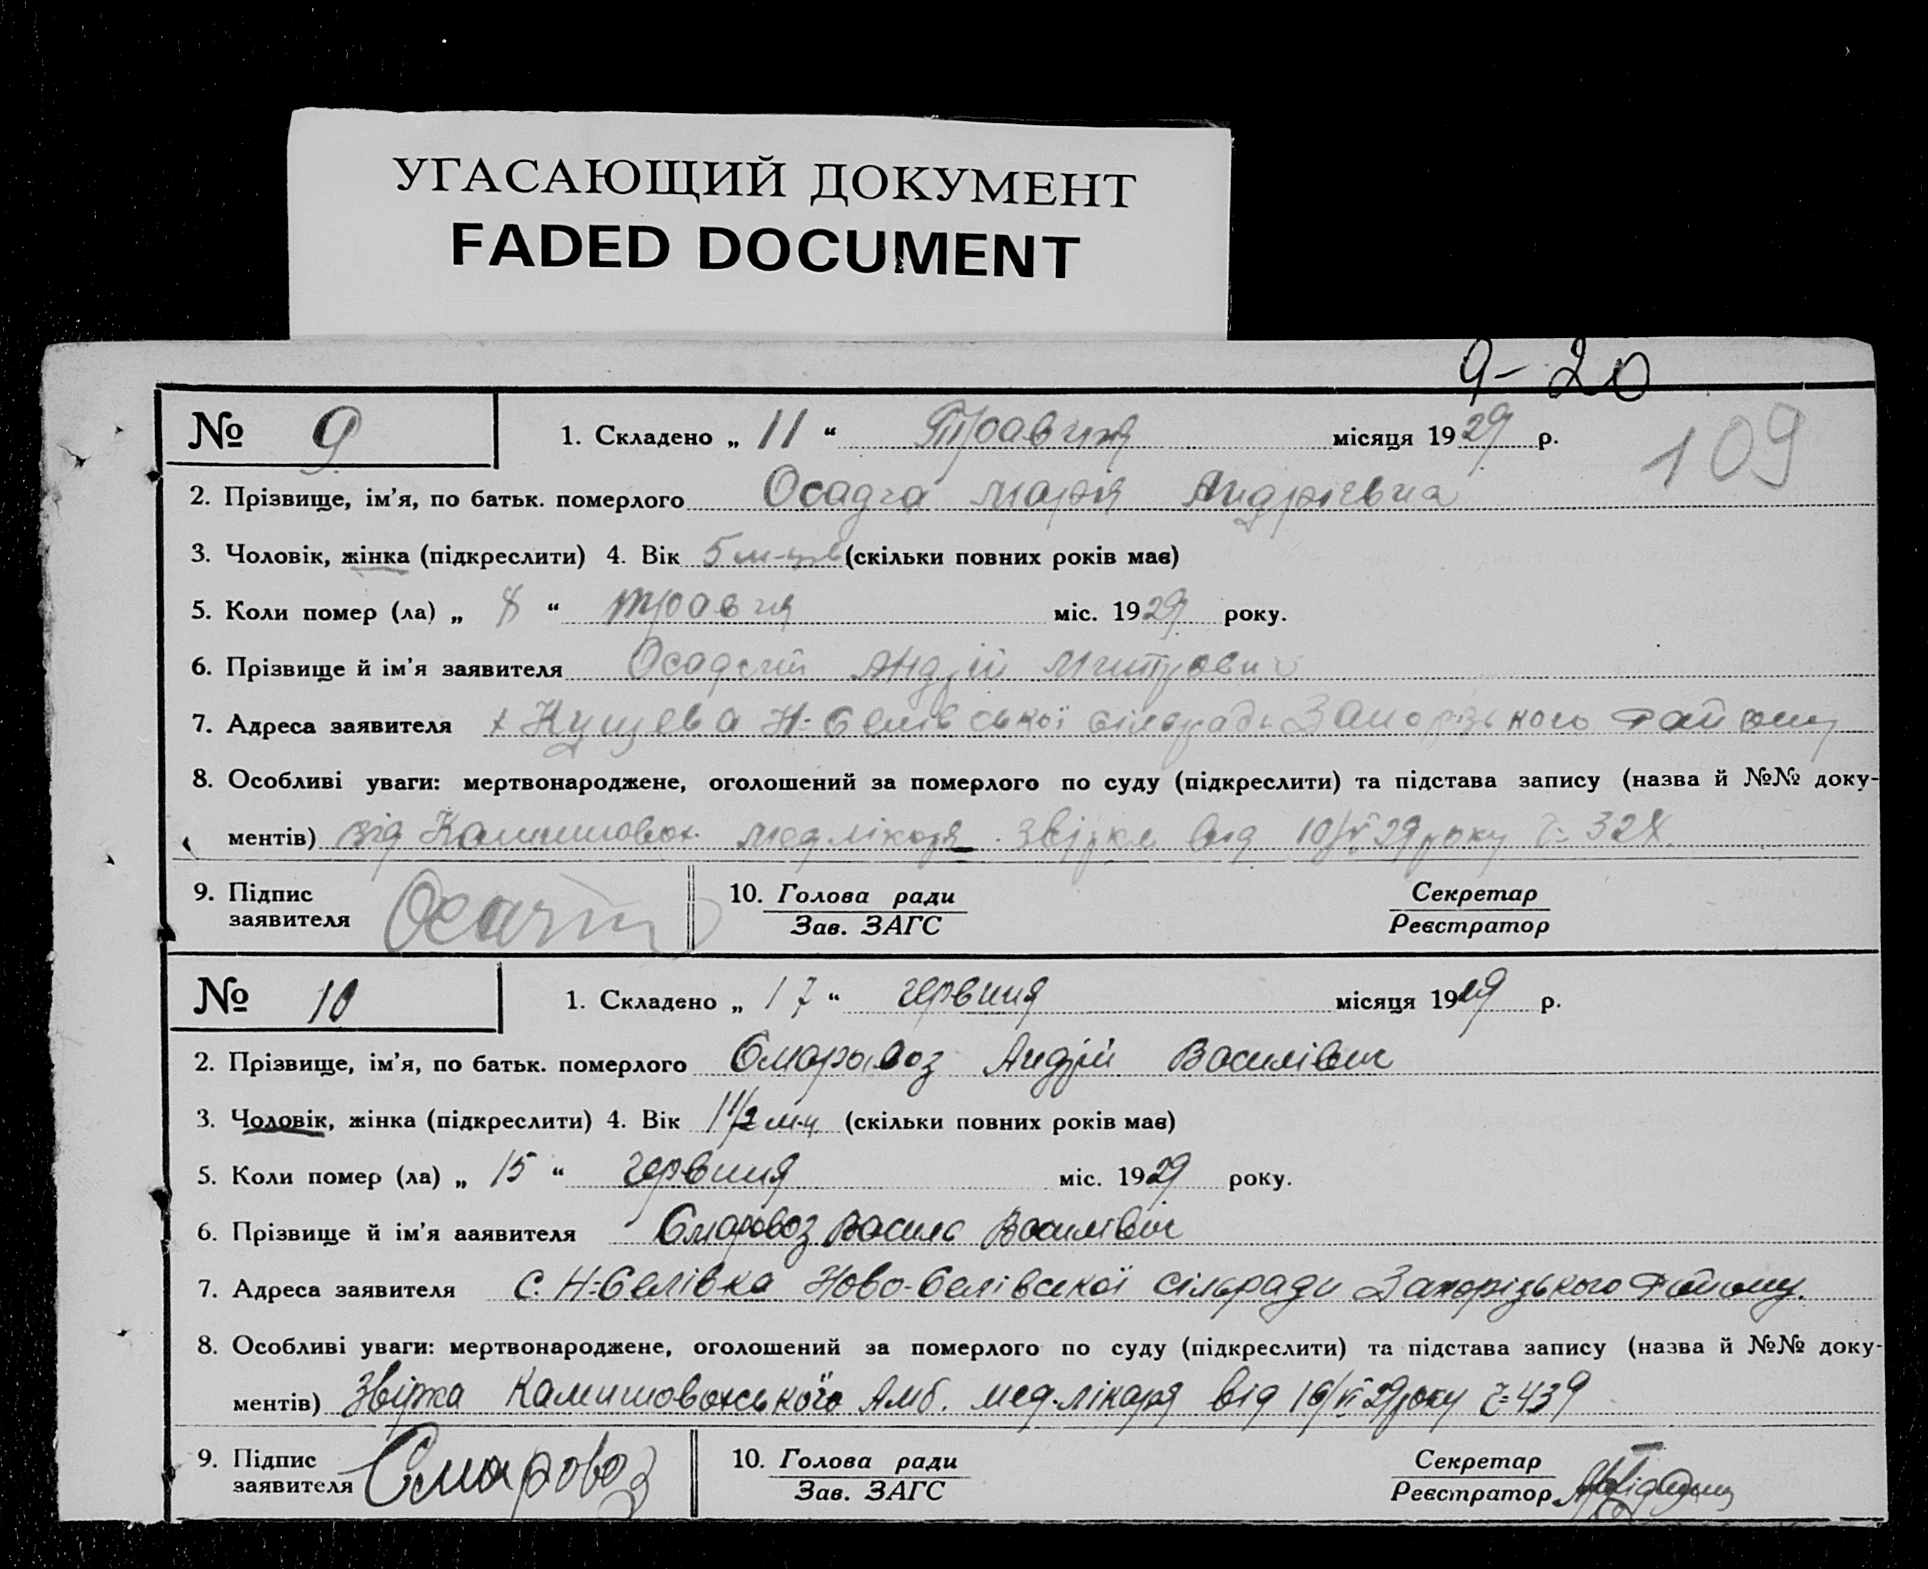 УГАСАЮЩИЙ ДОКУМЕНТ
FADED DOCUMENT
9-20
№ 9 1. Складено „ 11 “ Травня місяця 1929 р.
109
2. Прізвище, ім’я, по батьк. померлого Осадча Марія Андріевна
3. Чоловік, жінка (підкреслити) 4. Вік 5 м-ців (скільки повних років має)
5. Коли помер (ла) „ 8 “ травня міс. 1929 року.
6. Прізвище й ім’я заявителя Осадчий Андрій Митрович
7. Адреса заявителя х Кущева Н-Селівської сільради Запорізького району
8. Особливі уваги: мертвонароджене, оголошений за померлого по суду (підкреслити) та підстава запису (назва й №№ доку-
ментів) від медлікаря від 10/V 29 року ч-
9. Підпис заявителя 10. Голова ради Секретар
Зав. ЗАГС Реєстратор
№ 10 1. Складено „ 17 “ червня місяця 1929 р.
2. Прізвище, ім’я, по батьк. померлого Андрій Василівич
3. Чоловік, жінка (підкреслити) 4. Вік 1 1/2 м-ц. (скільки повних років має)
5. Коли помер (ла) „ 15 “ червня міс. 1929 року.
6. Прізвище й ім’я ааявителя Старовоз Василь Василівич
7. Адреса заявителя С. Н-Селівка Ново-Селівської сільради Запорізького району.
8. Особливі уваги: мертвонароджене, оголошений за померлого по суду (підкреслити) та підстава запису (назва й №№ доку-
ментів) Камишовахського Амб. мед.лікаря від 16/VI 29 року ч-439
9. Підпис заявителя Старовоз 10. Голова ради Секретар
Зав. ЗАГС Реєстратор